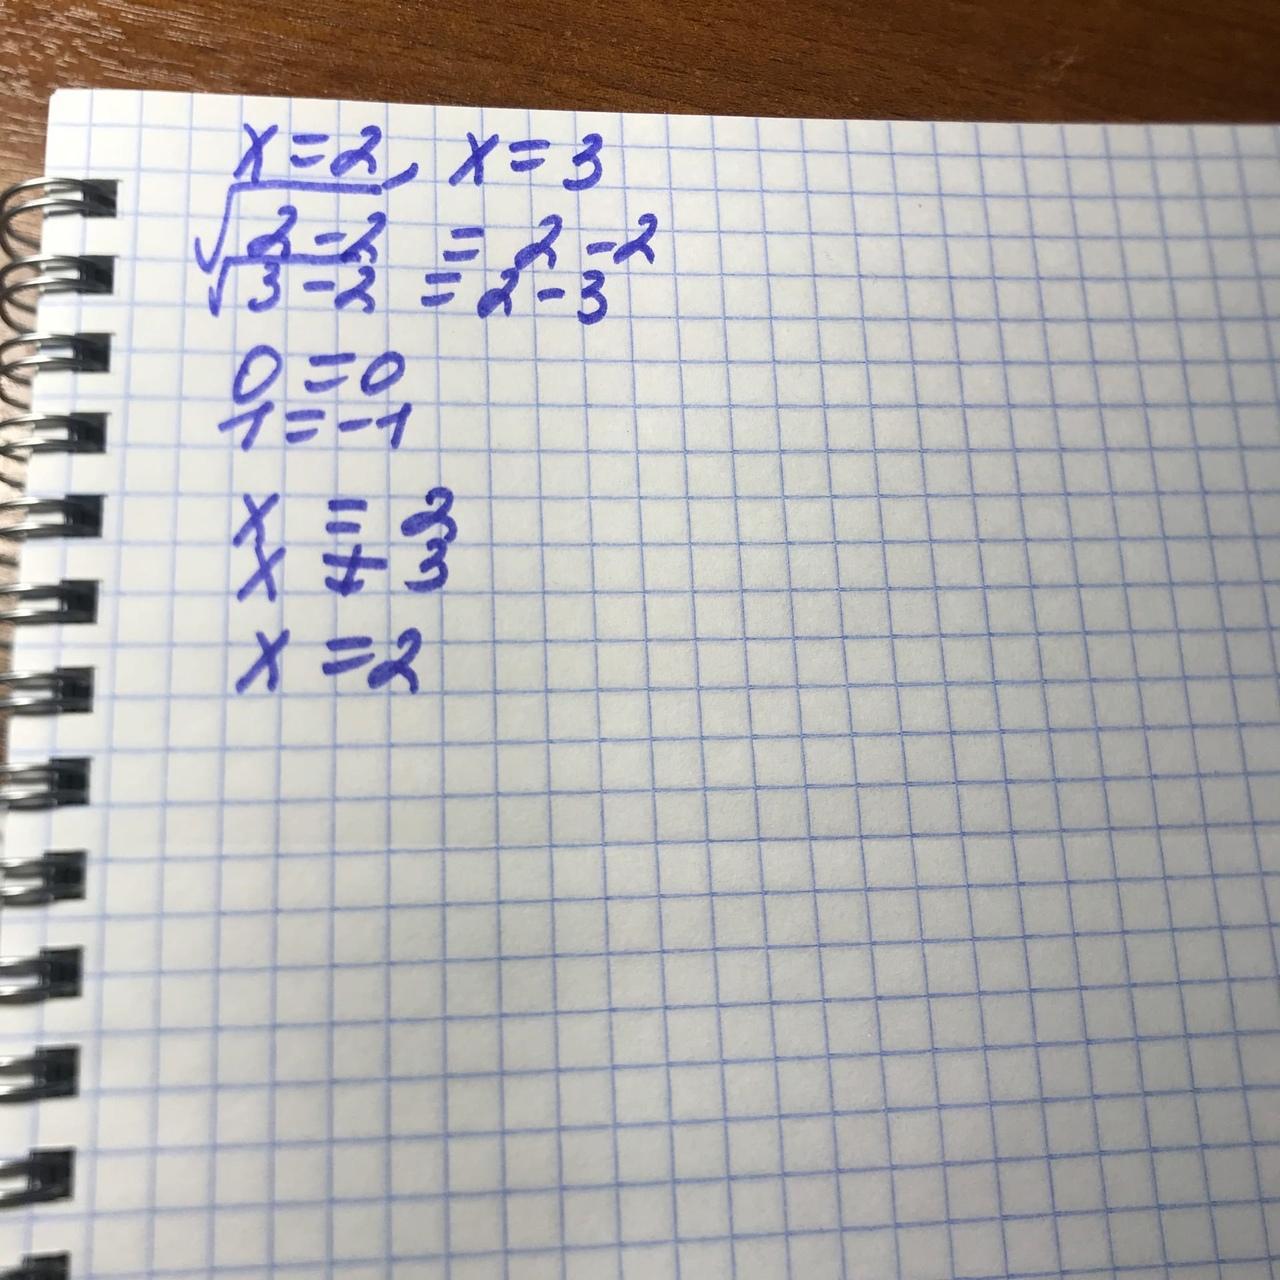 x = 2, x = 3
√2 - 2 = 2 - 2
√3 - 2 = 2 - 3
0 = 0
1 = -1
x = 2
x ≠ 3
x = 2